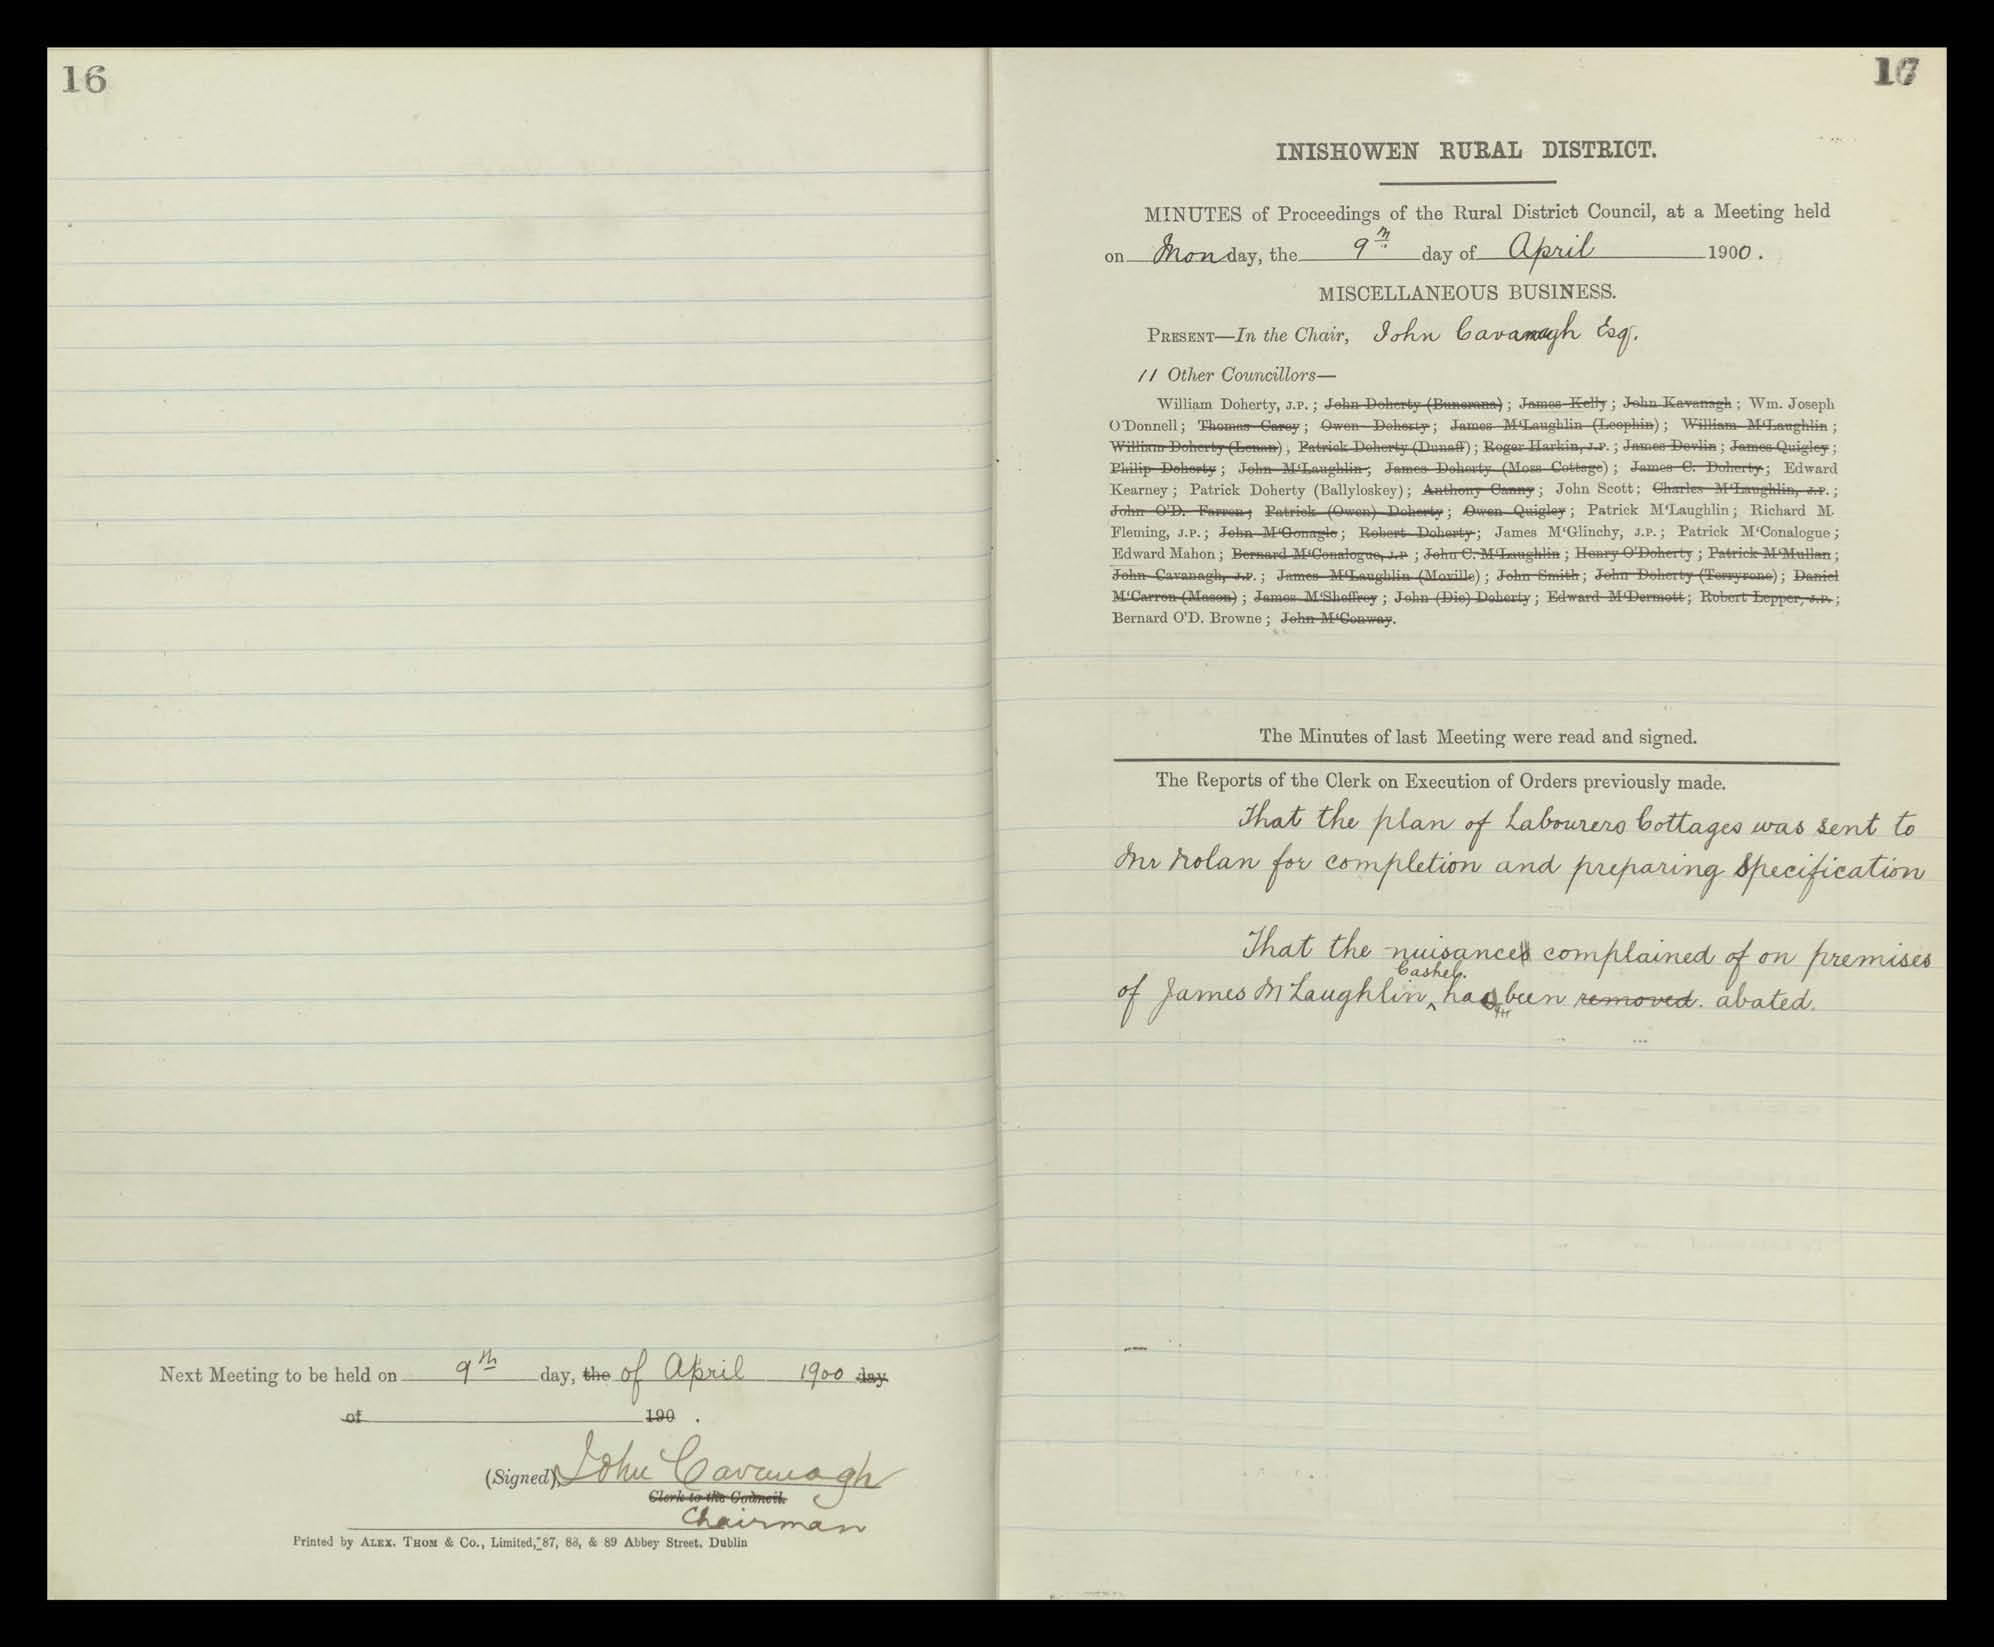 16
Next Meeting to be held on 9th day, the of April 1900 day
of 190 .
(Signed), John Cavanagh
Clerk to the Council.
Chairman
Printed by ALEX. THOM & Co., Limited, 87, 88, & 89 Abbey Street, Dublin
17
INISHOWEN RURAL DISTRICT.
MINUTES of Proceedings of the Rural District Council, at a Meeting held
on Monday, the 9th day of April 1900.
MISCELLANEOUS BUSINESS.
PRESENT—In the Chair, John Cavanagh Esq.
11 Other Councillors—
William Doherty, J.P.; John Doherty (Buncrana); James Kelly; John Kavanagh; Wm. Joseph
O'Donnell; Thomas Carey; Owen Doherty; James M'Laughlin (Leophin); William M'Laughlin;
William Doherty (Lenan), Patrick Doherty (Dunaff); Roger Harkin, J.P.; James Devlin; James Quigley;
Philip Doherty; John M'Laughlin; James Doherty (Moss Cottage); James C. Doherty; Edward
Kearney; Patrick Doherty (Ballyloskey); Anthony Canny; John Scott; Charles M'Laughlin, J.P.;
John O'D. Farren; Patrick (Owen) Doherty; Owen Quigley; Patrick M'Laughlin; Richard M.
Fleming, J.P.; John M'Gonagle; Robert Doherty; James M'Glinchy, J.P.; Patrick M'Conalogue;
Edward Mahon; Bernard M'Conalogue, J.P; John C. M'Laughlin; Henry O'Doherty; Patrick M'Mullan;
John Cavanagh, J.P.; James M'Laughlin (Moville); John Smith; John Doherty (Terryrone); Daniel
M'Carron (Mason); James M'Sheffrey; John (Die) Doherty; Edward M'Dermott; Robert Lepper, J.P.;
Bernard O'D. Browne; John M'Conway.
The Minutes of last Meeting were read and signed.
The Reports of the Clerk on Execution of Orders previously made.
That the plan of Labourers Cottages was sent to
Mr Nolan for completion and preparing Specification
That the nuisance complained of on premises
Cashel.
of James McLaughlin, has been removed. abated.